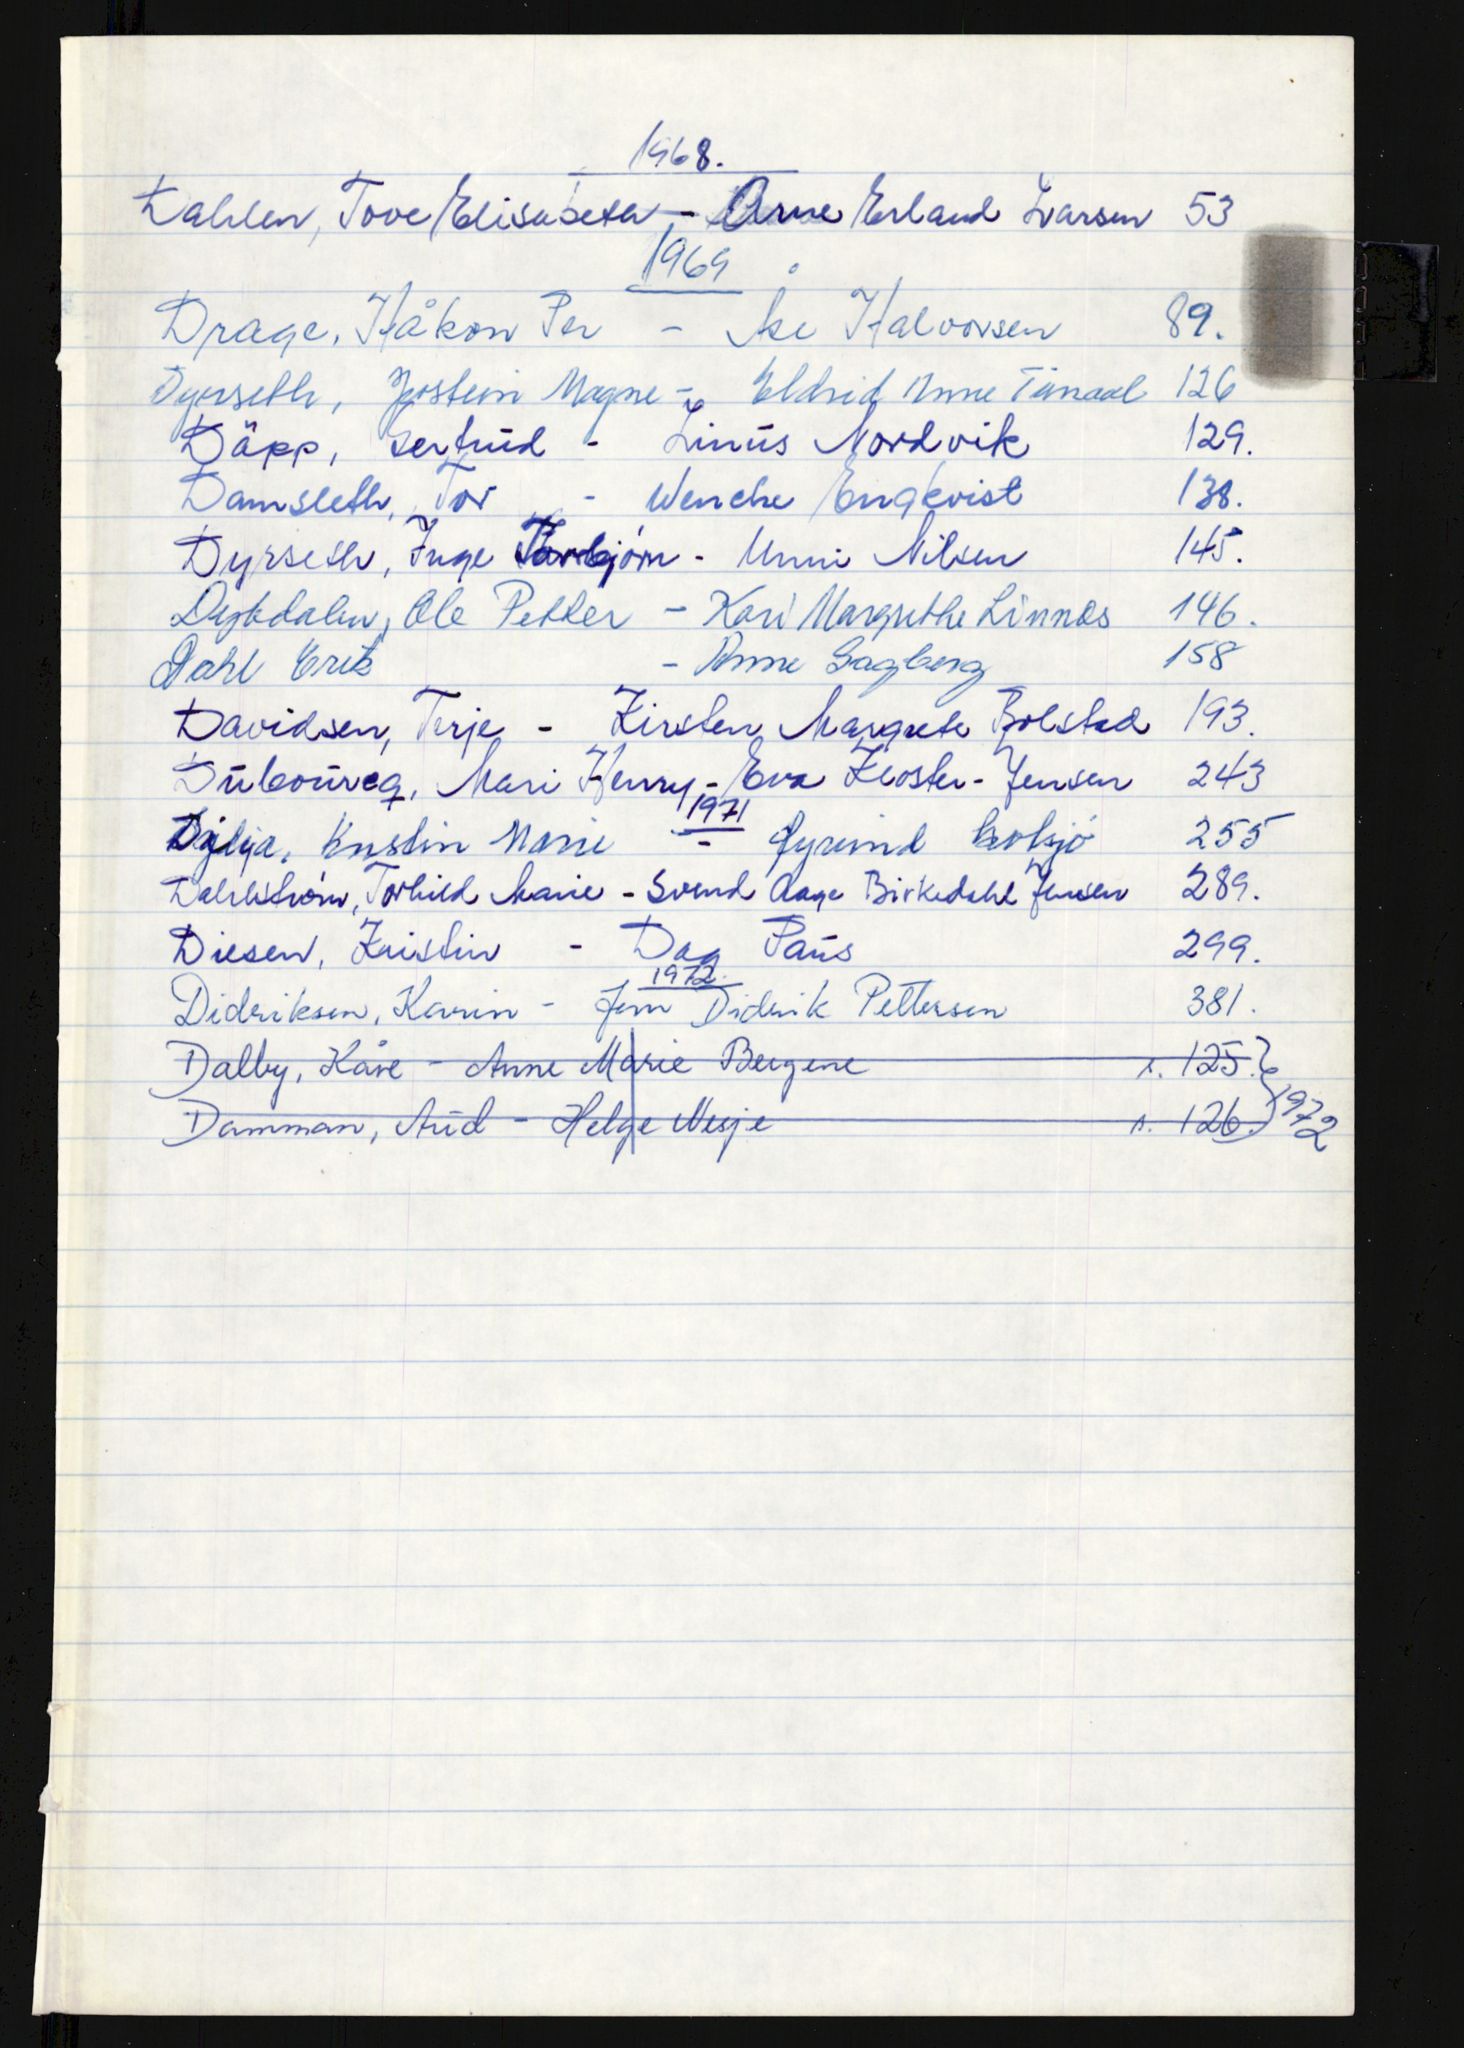 1968.
Dahlen, Tove Elisabeth - Arne Erland Larsen 53
1969
Drage, Håkon Per - Åse Halvorsen 89.
Dyrseth, Jostein Magne - Eldrid Anne 126
Däpp, Gertrud - Linus Nordvik 129.
Damsleth, Tor - Wenche Engkvist 138.
Dyrseth, Inge Torbjørn - Unni Nilsen 145.
Ole Petter - Kari Margrethe Linnås 146.
Dahl Erik - Anne Sagberg 158
Davidsen, Terje - Kirsten Margrete Bolstad 193.
Dubourcq, Mari Henry - Eva Kloster-Jensen 243
1971
Kristin Marie - Øyvind 255
Dahlstrøm, Torhild Marie - Svend Aage Birkedahl Jensen 289.
Diesen, Kristin - Dag Paus 299.
1972.
Didriksen, Karin - Jern Didrik Pettersen 381.
Dalby, Kåre - Anne Marie Bergene s. 125.
Damman, Aud - Helge Nesje s. 126.
1972